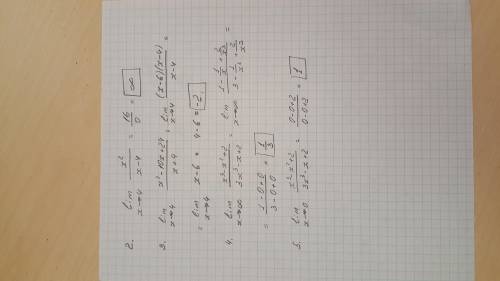 2. lim x→4 x²/(x-4) = 16/0 = ∞
3. lim x→4 (x²-10x+24)/(x+4) = lim x→4 (x-6)(x-4)/(x-4) =
= lim x→4 x-6 = 4-6 = -2.
4. lim x→∞ (x³-x²+2)/(3x³-x+2) = lim x→∞
= (1-0+0)/(3-0+0) = 1/3
5. lim x→0 (x³-x²+2)/(3x³-x+2) = (0-0+2)/(0-0+2) = 1